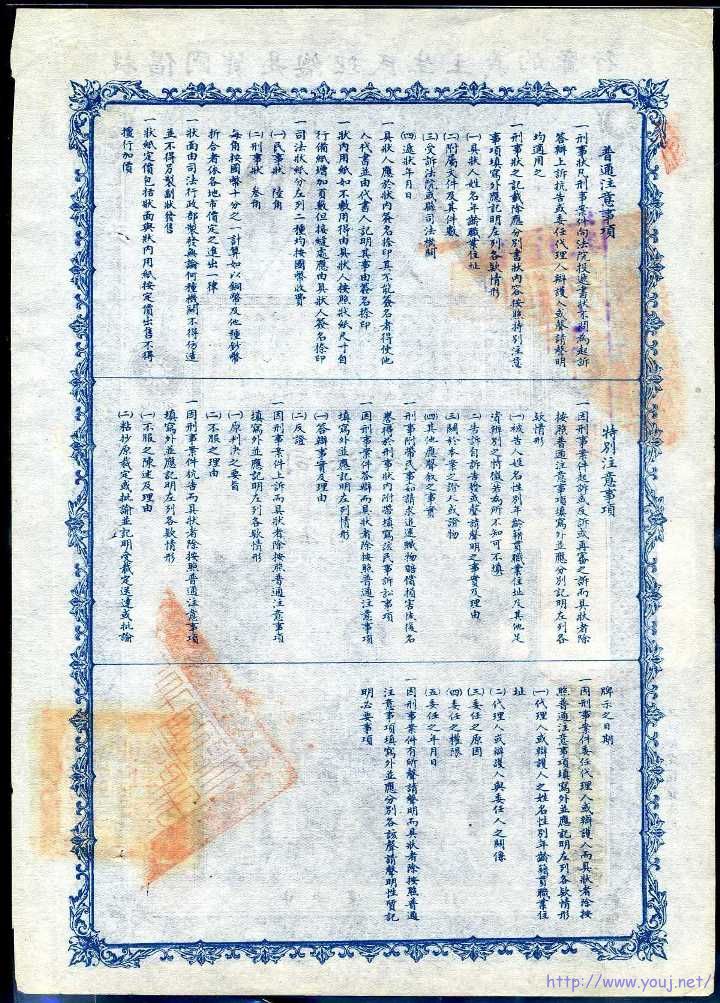 普通注意事項
一刑事狀凡刑事案件向法院投遞書狀不問為起訴
答辯上訴抗告或委任代理人辯護人或聲請聲明
均適用之
一刑事狀之記載除應分別書狀內容按照特別注意
事項填寫外應記明左列各欵情形
㈠具狀人姓名年齡職業住址
㈡附屬文件及其件數
㈢受訴法院或縣司法機關
㈣遞狀年月日
一具狀人應於狀內簽名捺印其不能簽名者得使他
人代書並由代書人記明其事由簽名捺印
一狀內用紙如不敷用得由具狀人按照狀紙尺寸自
行備紙增加頁數但接縫處應由具狀人簽名捺印
一司法狀紙分左列二種均按國幣收費
㈠民事狀 陸角
㈡刑事狀 叁角
每角按國幣十分之一計算如以銅幣及他種鈔幣
折合者依各地市價定之進出一律
一狀面由司法行政部製發無論何種機關不得仿造
並不得另製副狀發售
一狀紙定價包括狀面與狀內用紙按定價出售不得
擅行加價
特別注意事項
一因刑事案件起訴或反訴或再審之訴而具狀者除
按照普通注意事項填寫外並應分別記明左列各
欵情形
㈠被告人姓名性別年齡籍貫職業住址及其他足
資辨別之特徵若為所不知可不填
㈡告訴自訴告發或聲請聲明之事實及理由
㈢關於本案之證人或證物
㈣其他應聲敘之事實
一刑事附帶民事如請求追還贓物賠償損害恢復名
譽得於刑事狀內附帶填寫該民事訴訟事項
一因刑事案件答辯而具狀者除按照普通注意事項
填寫外並應記明左列情形
㈠答辯事實及理由
㈡反證
一因刑事案件上訴而具狀者除按照普通注意事項
填寫外並應記明左列各欵情形
㈠原判決之要旨
㈡不服之理由
一因刑事案件抗告而具狀者除按照普通注意事項
填寫外並應記明左列各欵情形
㈠不服之陳述及理由
㈡粘抄原裁定或批諭並記明令裁定送達或批諭
牌示之日期
一因刑事案件委任代理人或辯護人而具狀者除按
照普通注意事項填寫外並應記明左列各欵情形
㈠代理人或辯護人之姓名性別年齡籍貫職業住
址
㈡代理人或辯護人與委任人之關係
㈢委任之原因
㈣委任之權限
㈤委任之年月日
一因刑事案件有所聲請聲明而具狀者除按照普通
注意事項填寫外並應分別各該聲請聲明性質記
明必要事項
http://www.youj.net/